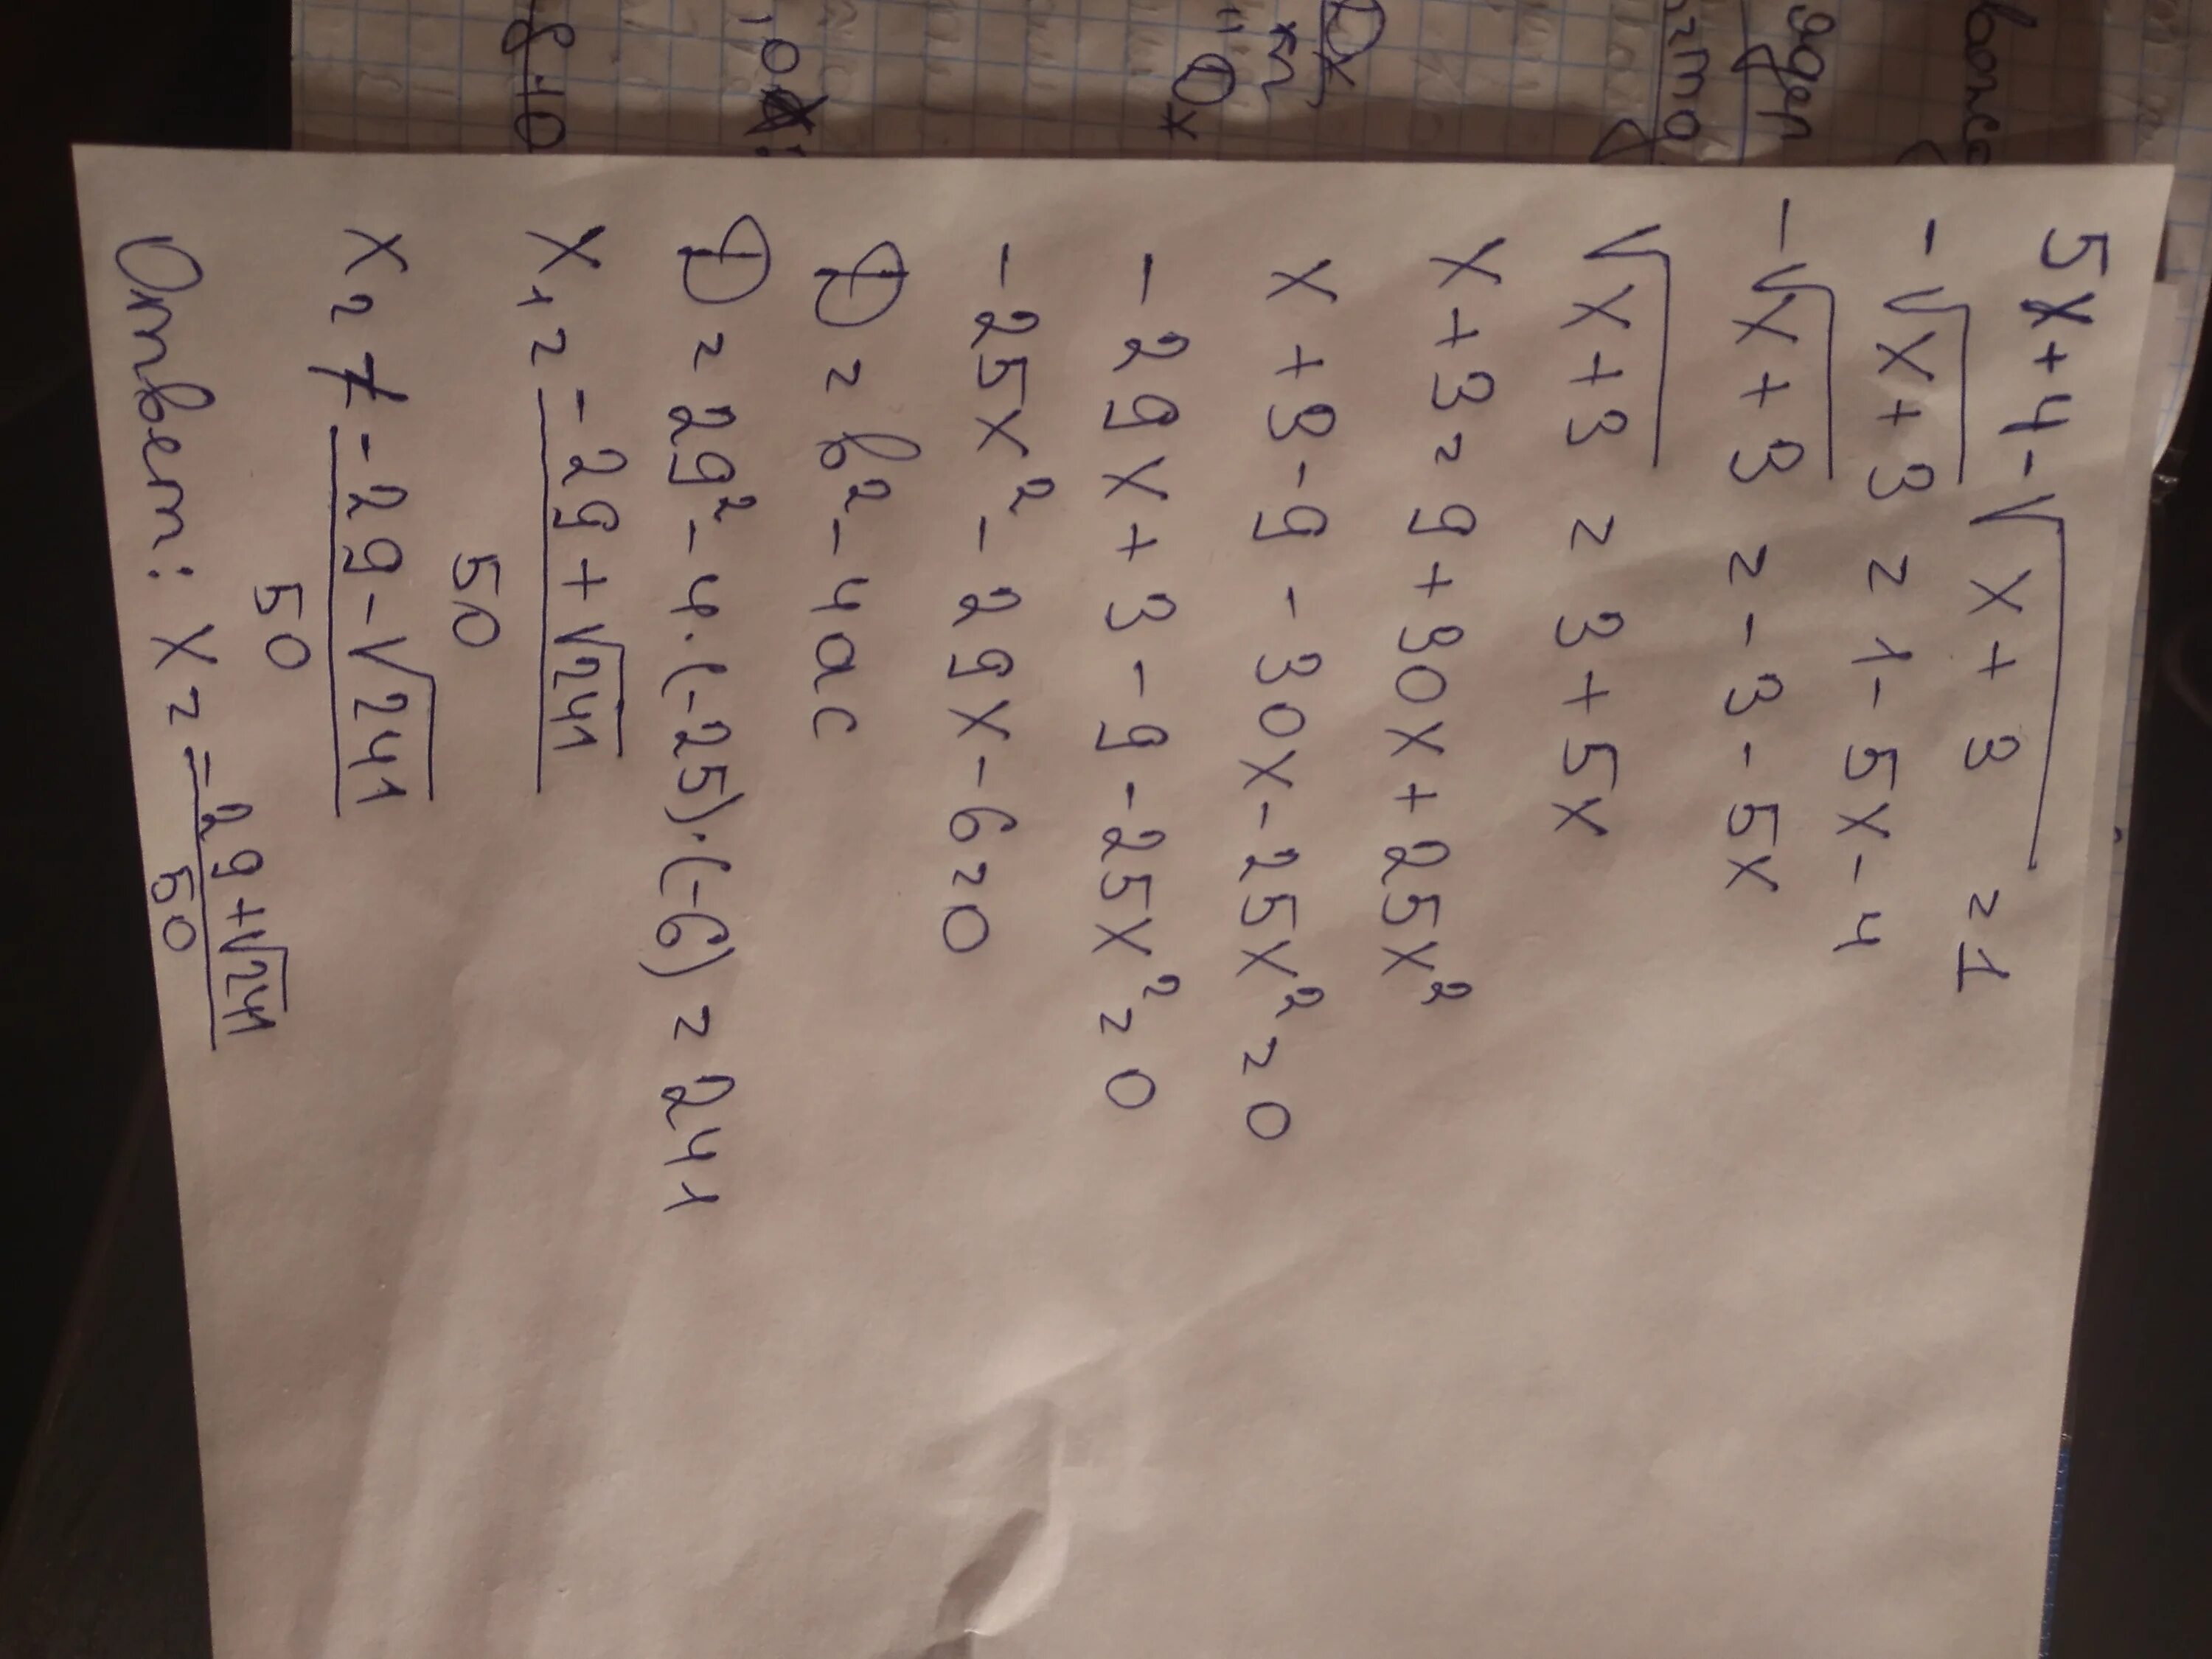 5x+4-√x+3 =1
-√x+3 = 1-5x-4
-√x+3 = -3-5x
√x+3 = 3+5x
x+3=9+30x+25x²
x+3-9-30x-25x²=0
-29x+3-9-25x²=0
-25x²-29x-6=0
D=b²-4ac
D=29²-4·(-25)·(-6)=241
x₁=-29+√241
50
x₂≠-29-√241
50
Ответ: x=-29+√241
50